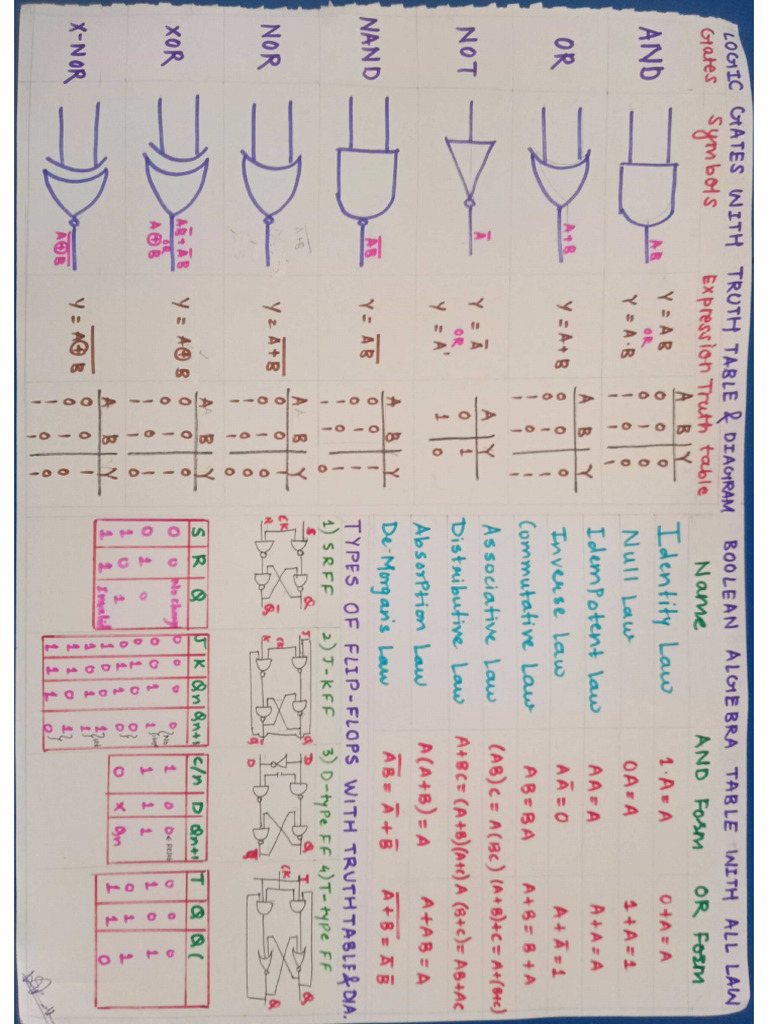 LOGIC GATES WITH TRUTH TABLE & DIAGRAM
Gates Symbols Expression Truth table
AND AB Y = AB OR Y = A·B
A B Y
0 0 0
0 1 0
1 0 0
1 1 1
OR A+B Y = A+B
A B Y
0 0 0
0 1 1
1 0 1
1 1 1
NOT A̅ Y = A̅ OR Y = A'
A Y
0 1
1 0
NAND A̅B̅ Y = A̅B̅
A B Y
0 0 1
0 1 1
1 0 1
1 1 0
NOR A+B Y = A̅+̅B̅
A B Y
0 0 1
0 1 0
1 0 0
1 1 0
XOR Y = A⊕B
A⊕B
A B Y
0 0 0
0 1 1
1 0 1
1 1 0
X-NOR A̅⊕̅B̅ Y = A̅⊕̅B̅
A B Y
0 0 1
0 1 0
1 0 0
1 1 1
BOOLEAN ALGEBRA TABLE WITH ALL LAW
Name AND Form OR Form
Identity Law 1·A=A 0+A=A
Null Law 0A=A 1+A=1
Idempotent law AA=A A+A=A
Inverse law AA̅=0 A+A̅=1
Commutative Law AB=BA A+B=B+A
Associative Law (AB)C=A(BC) (A+B)+C=A+(B+C)
Distributive Law A+BC=(A+B)(A+C) A(B+C)=AB+AC
Absorption Law A(A+B)=A A+AB=A
De-Morgan's Law A̅B̅=A̅+B̅ A̅+̅B̅=A̅ B̅
TYPES OF FLIP-FLOPS WITH TRUTH TABLE & DIA.
1) SRFF 2) J-KFF 3) D-type FF 4) T-type FF
S CK R Q Q̅
J CK K Q
D Q
T CK Q
S R Q
0 0 No change
0 1 0
1 0 1
1 1 Invalid
J K Qn Qn+1
0 0 0 0
0 0 1 1
0 1 0 0
0 1 1 0
1 0 0 1
1 0 1 1
1 1 0 1
1 1 1 0
C/n D Qn+1
1 0 0
1 1 1
0 X Qn
T Q Q(
0 0 0
1 0 1
0 1 1
1 1 0